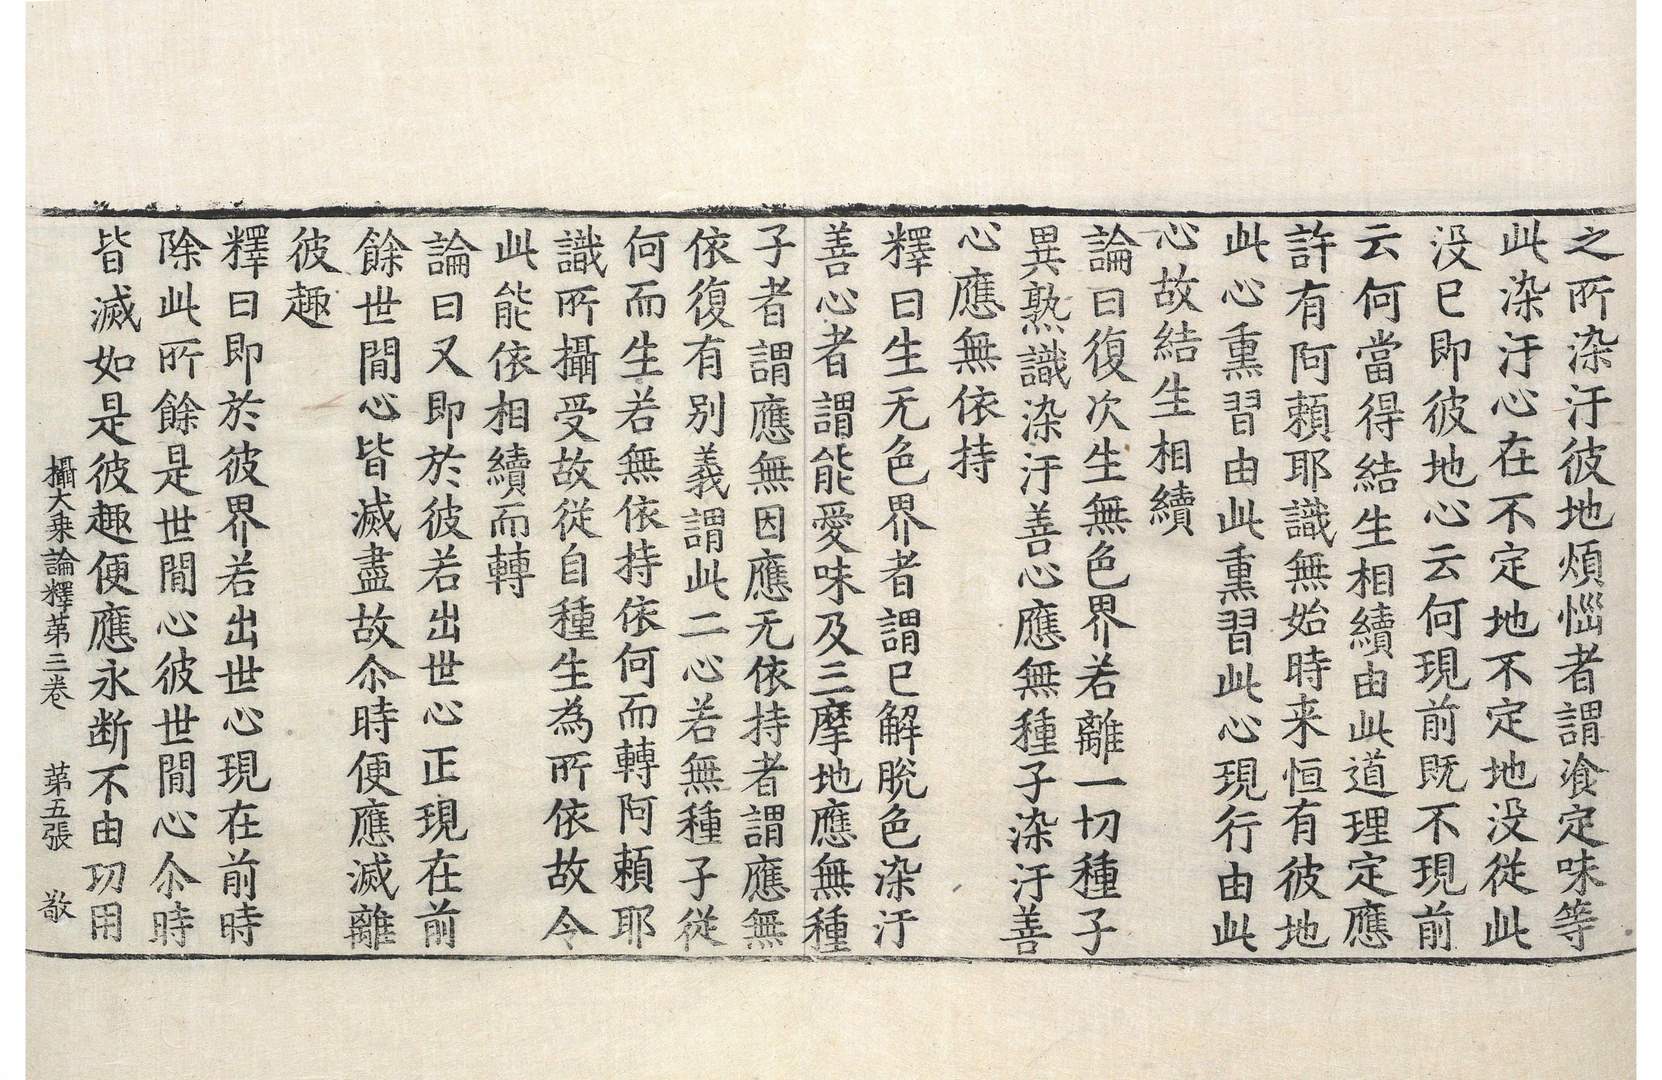 之所染汙彼地煩惱者謂飡定味等
此染汙心在不定地不定地没從此
没已即彼地心云何現前既不現前
云何當得結生相續由此道理定應
許有阿賴耶識無始時来恒有彼地
此心熏習由此熏習此心現行由此
心故結生相續
論曰復次生無色界若離一切種子
異熟識染汙善心應無種子染汙善
心應無依持
釋曰生无色界者謂已解脫色染汙
善心者謂能愛味及三摩地應無種
子者謂應無因應无依持者謂應無
依復有別義謂此二心若無種子從
何而生若無依持依何而轉阿賴耶
識所攝受故從自種生為所依故令
此能依相續而轉
論曰又即於彼若出世心正現在前
餘世間心皆滅盡故尒時便應滅離
彼趣
釋曰即於彼界若出世心現在前時
除此所餘是世間心彼世間心尒時
皆滅如是彼趣便應永断不由功用
攝大乗論釋苐三卷 苐五張 敬